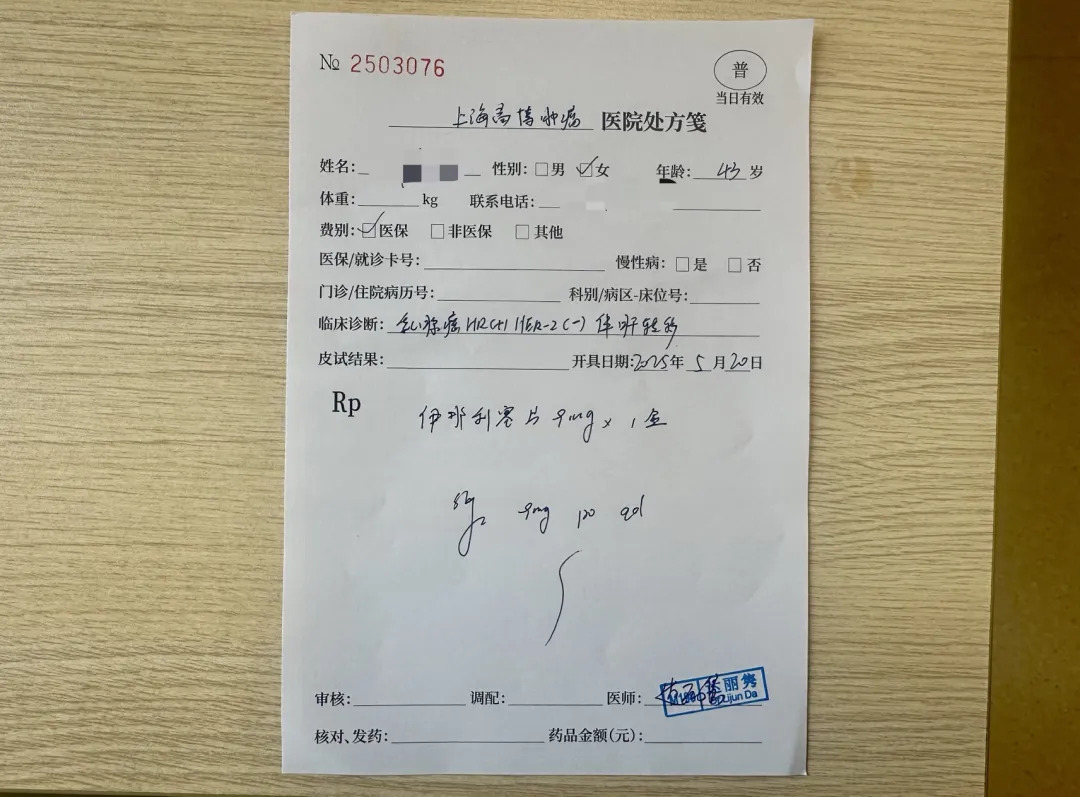 № 2503076
普
当日有效
上海高博肿瘤 医院处方笺
姓名: 性别: □男 ☑女 年龄: 43 岁
体重: kg 联系电话:
费别: ☑医保 □非医保 □其他
医保/就诊卡号: 慢性病: □是 □否
门诊/住院病历号: 科别/病区-床位号:
临床诊断: 乳腺癌 HR(+) HER-2(-) 伴肝转移
皮试结果: 开具日期: 2025年 5月20日
Rp
伊那利塞片 9mg x 1盒
9mg po qd
审核: 调配: 医师: 丽隽
ijun Da
核对、发药: 药品金额(元):